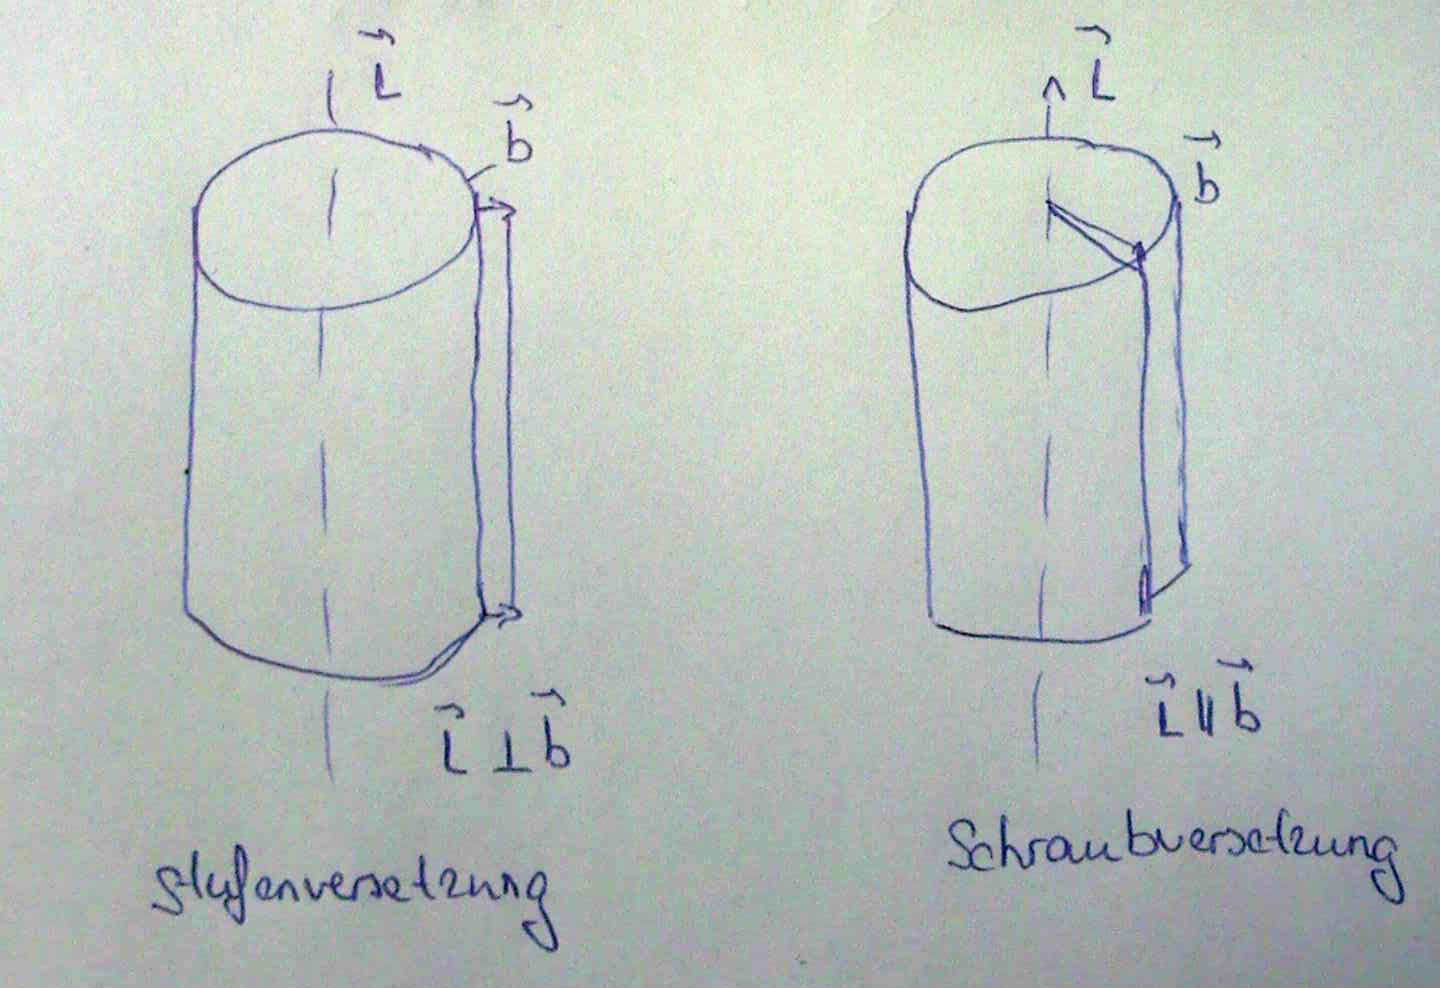 L⃗
b⃗
L⃗ ⊥ b⃗
Stufenversetzung
L⃗
b⃗
L⃗ ∥ b⃗
Schraubversetzung